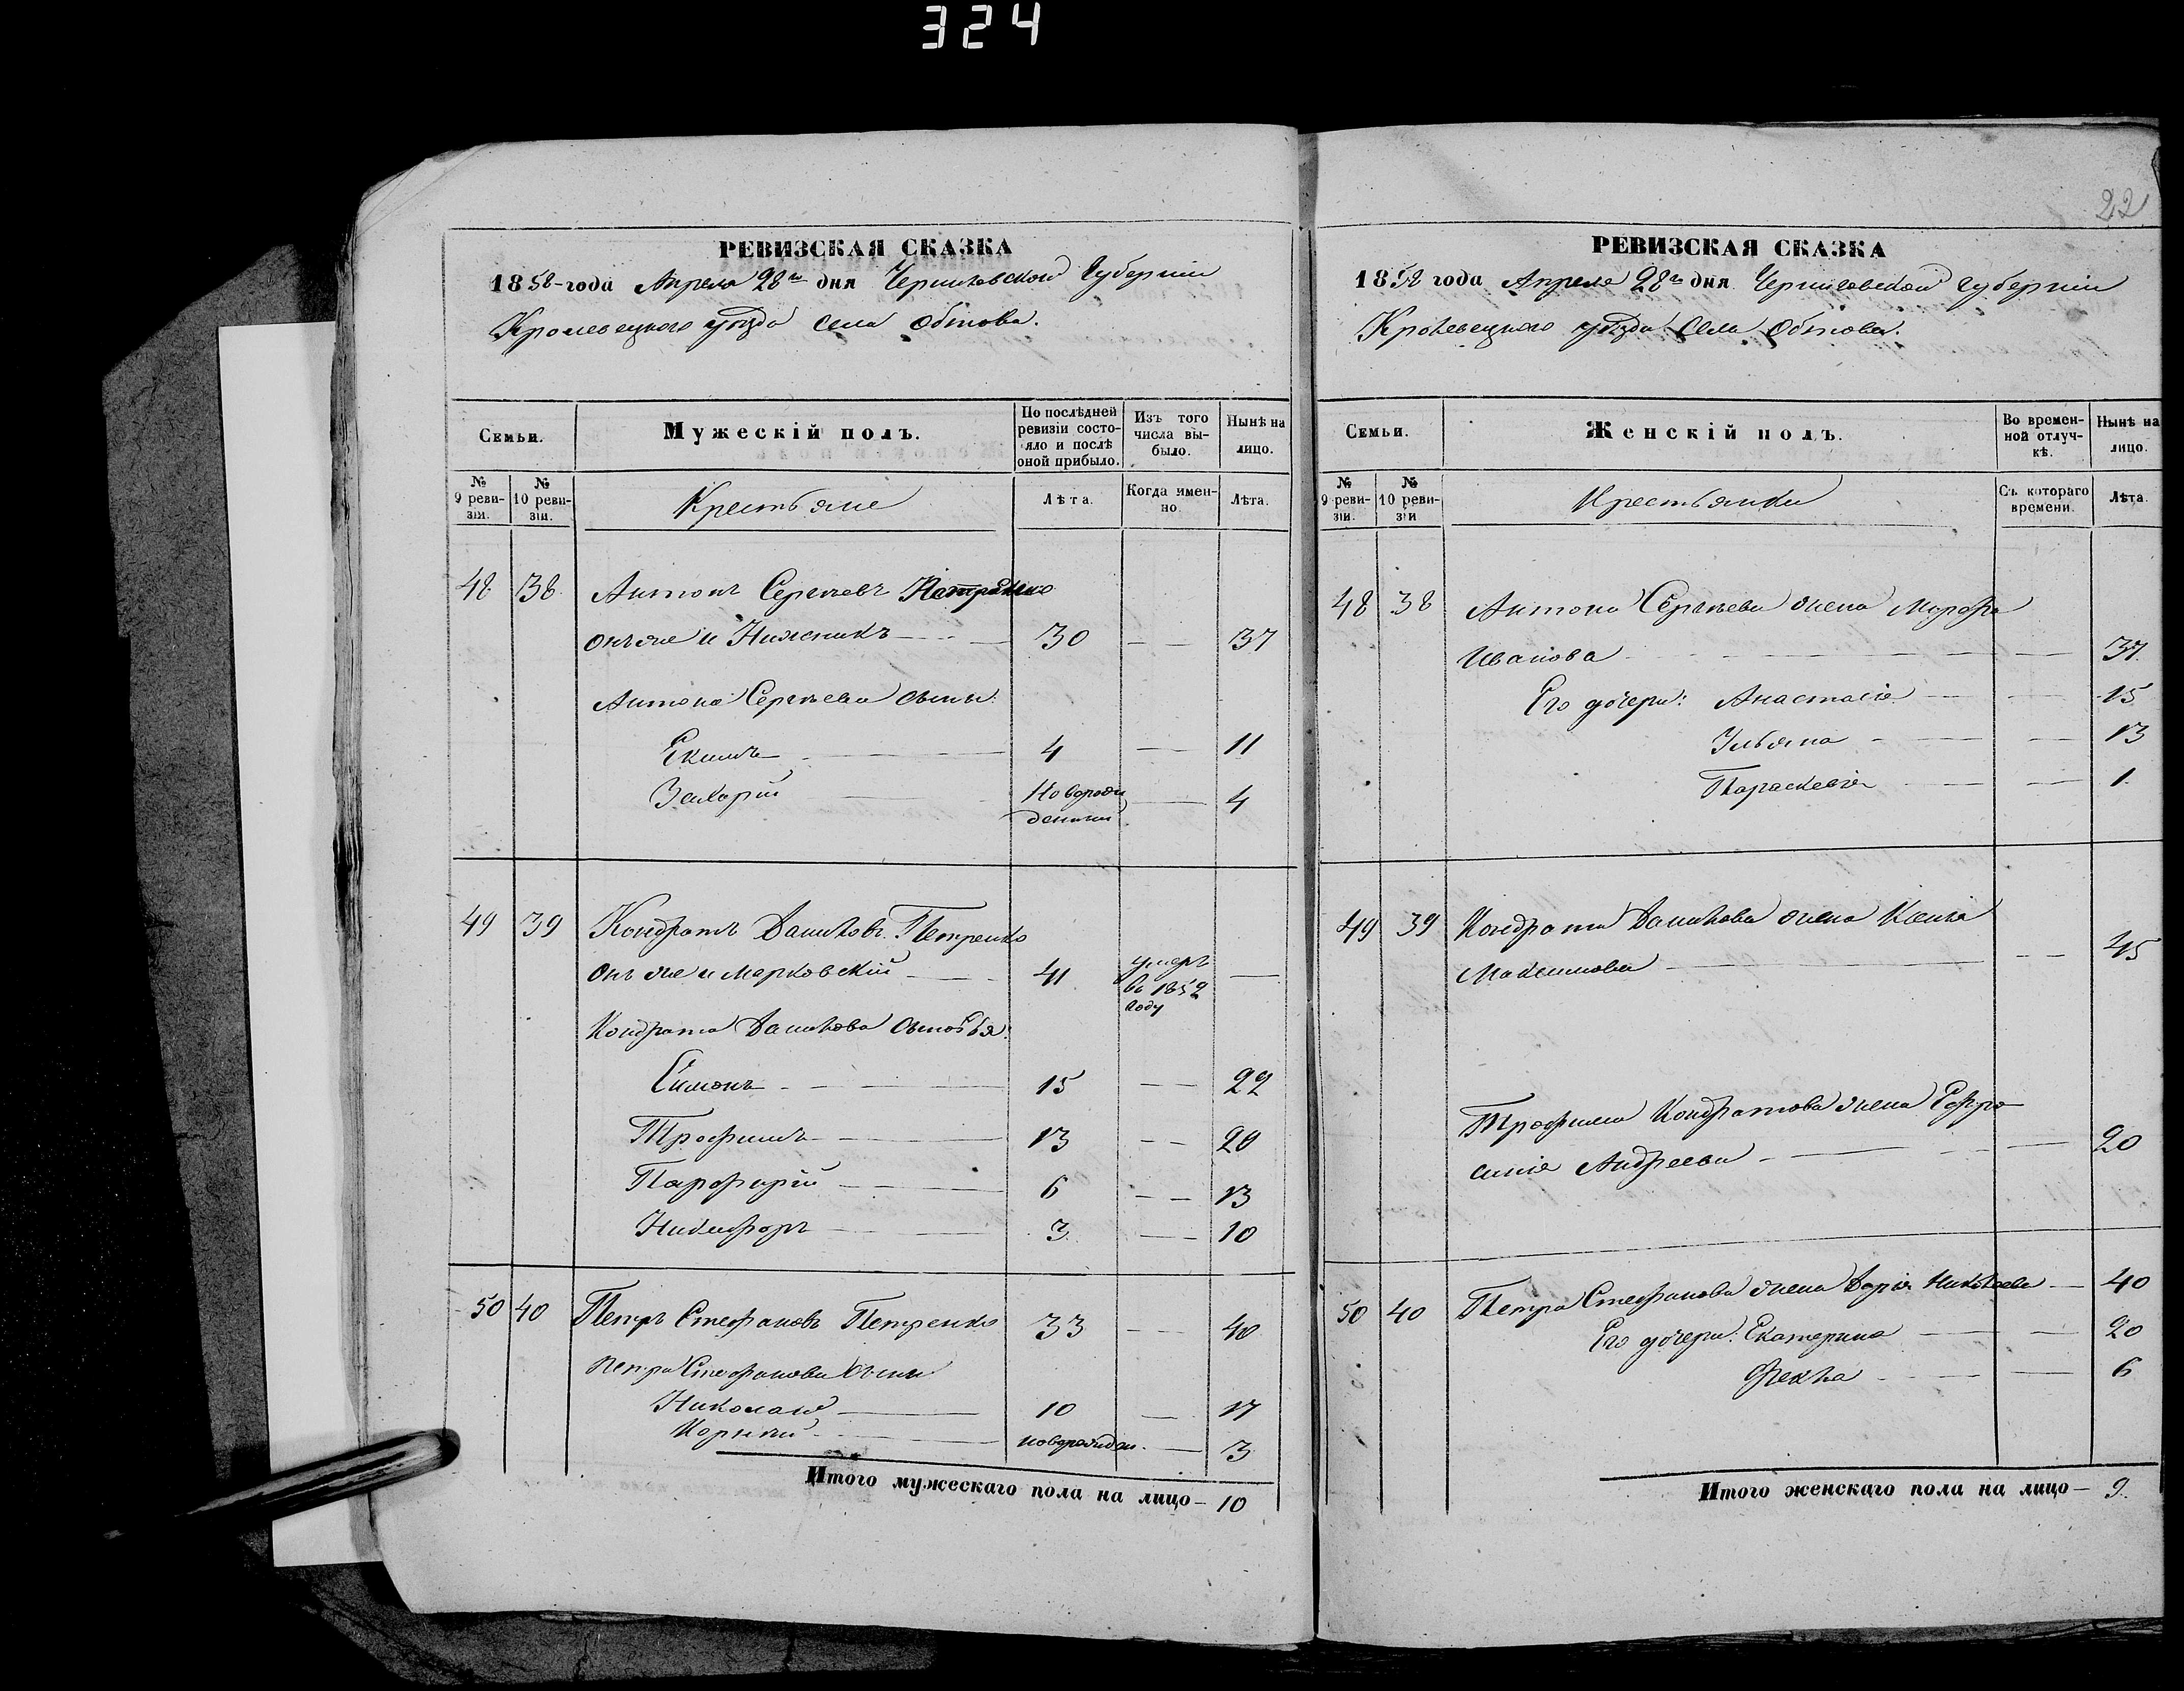 324
РЕВИЗСКАЯ СКАЗКА
1858 года Апреля 28го дня Черниговской Губерніи
Кролевецкого уѣзда села Обтова.
Семьи.
Мужескій полъ.
По послѣдней ревизіи состояло и послѣ оной прибыло.
Изъ того числа выбыло.
Нынѣ на лицо.
№ 9 ревизіи.
№ 10 ревизіи.
Крестьяне
Лѣта.
Когда именно.
Лѣта.
48 38 Антонъ Сергѣевъ
онъ же и Нижникъ 30 — 37
Антона Сергѣева сыны:
Екимъ 4 — 11
Захарій Новорожденный — 4
49 39 Кондратъ Даниловъ Петренко
онъ же и Марковскій 41 умеръ въ 1852 году —
Кондрата Данилова сыновья:
Симонъ 15 — 22
Трофимъ 13 — 20
Парфирій 6 — 13
Никифоръ 3 — 10
50 40 Петръ Стефановъ Петренко 33 — 40
Петра Стефанова сыны
Николай 10 — 17
Корнѣй новорожден. — 3
Итого мужескаго пола на лицо — 10
22
РЕВИЗСКАЯ СКАЗКА
1858 года Апреля 28го дня Черниговской губерніи
Кролевецкого уѣзда села Обтова.
Семьи.
Женскій полъ.
Во временной отлучкѣ.
Нынѣ на лицо.
№ 9 ревизіи.
№ 10 ревизіи
Крестьянки
Съ котораго времени.
Лѣта.
48 38 Антона Сергѣева жена Марфа
Иванова — 37
Его дочери: Анастасія — 15
Ульяна — 13
Параскевія — 1
49 39 Кондрата Данилова жена Ксенія
Максимова — 45
Трофима Кондратова жена Ефро-
синія Андреева — 20
50 40 Петра Стефанова жена Дарія Николаева — 40
Его дочери: Екатерина — 20
Фекла — 6
Итого женскаго пола на лицо — 9.